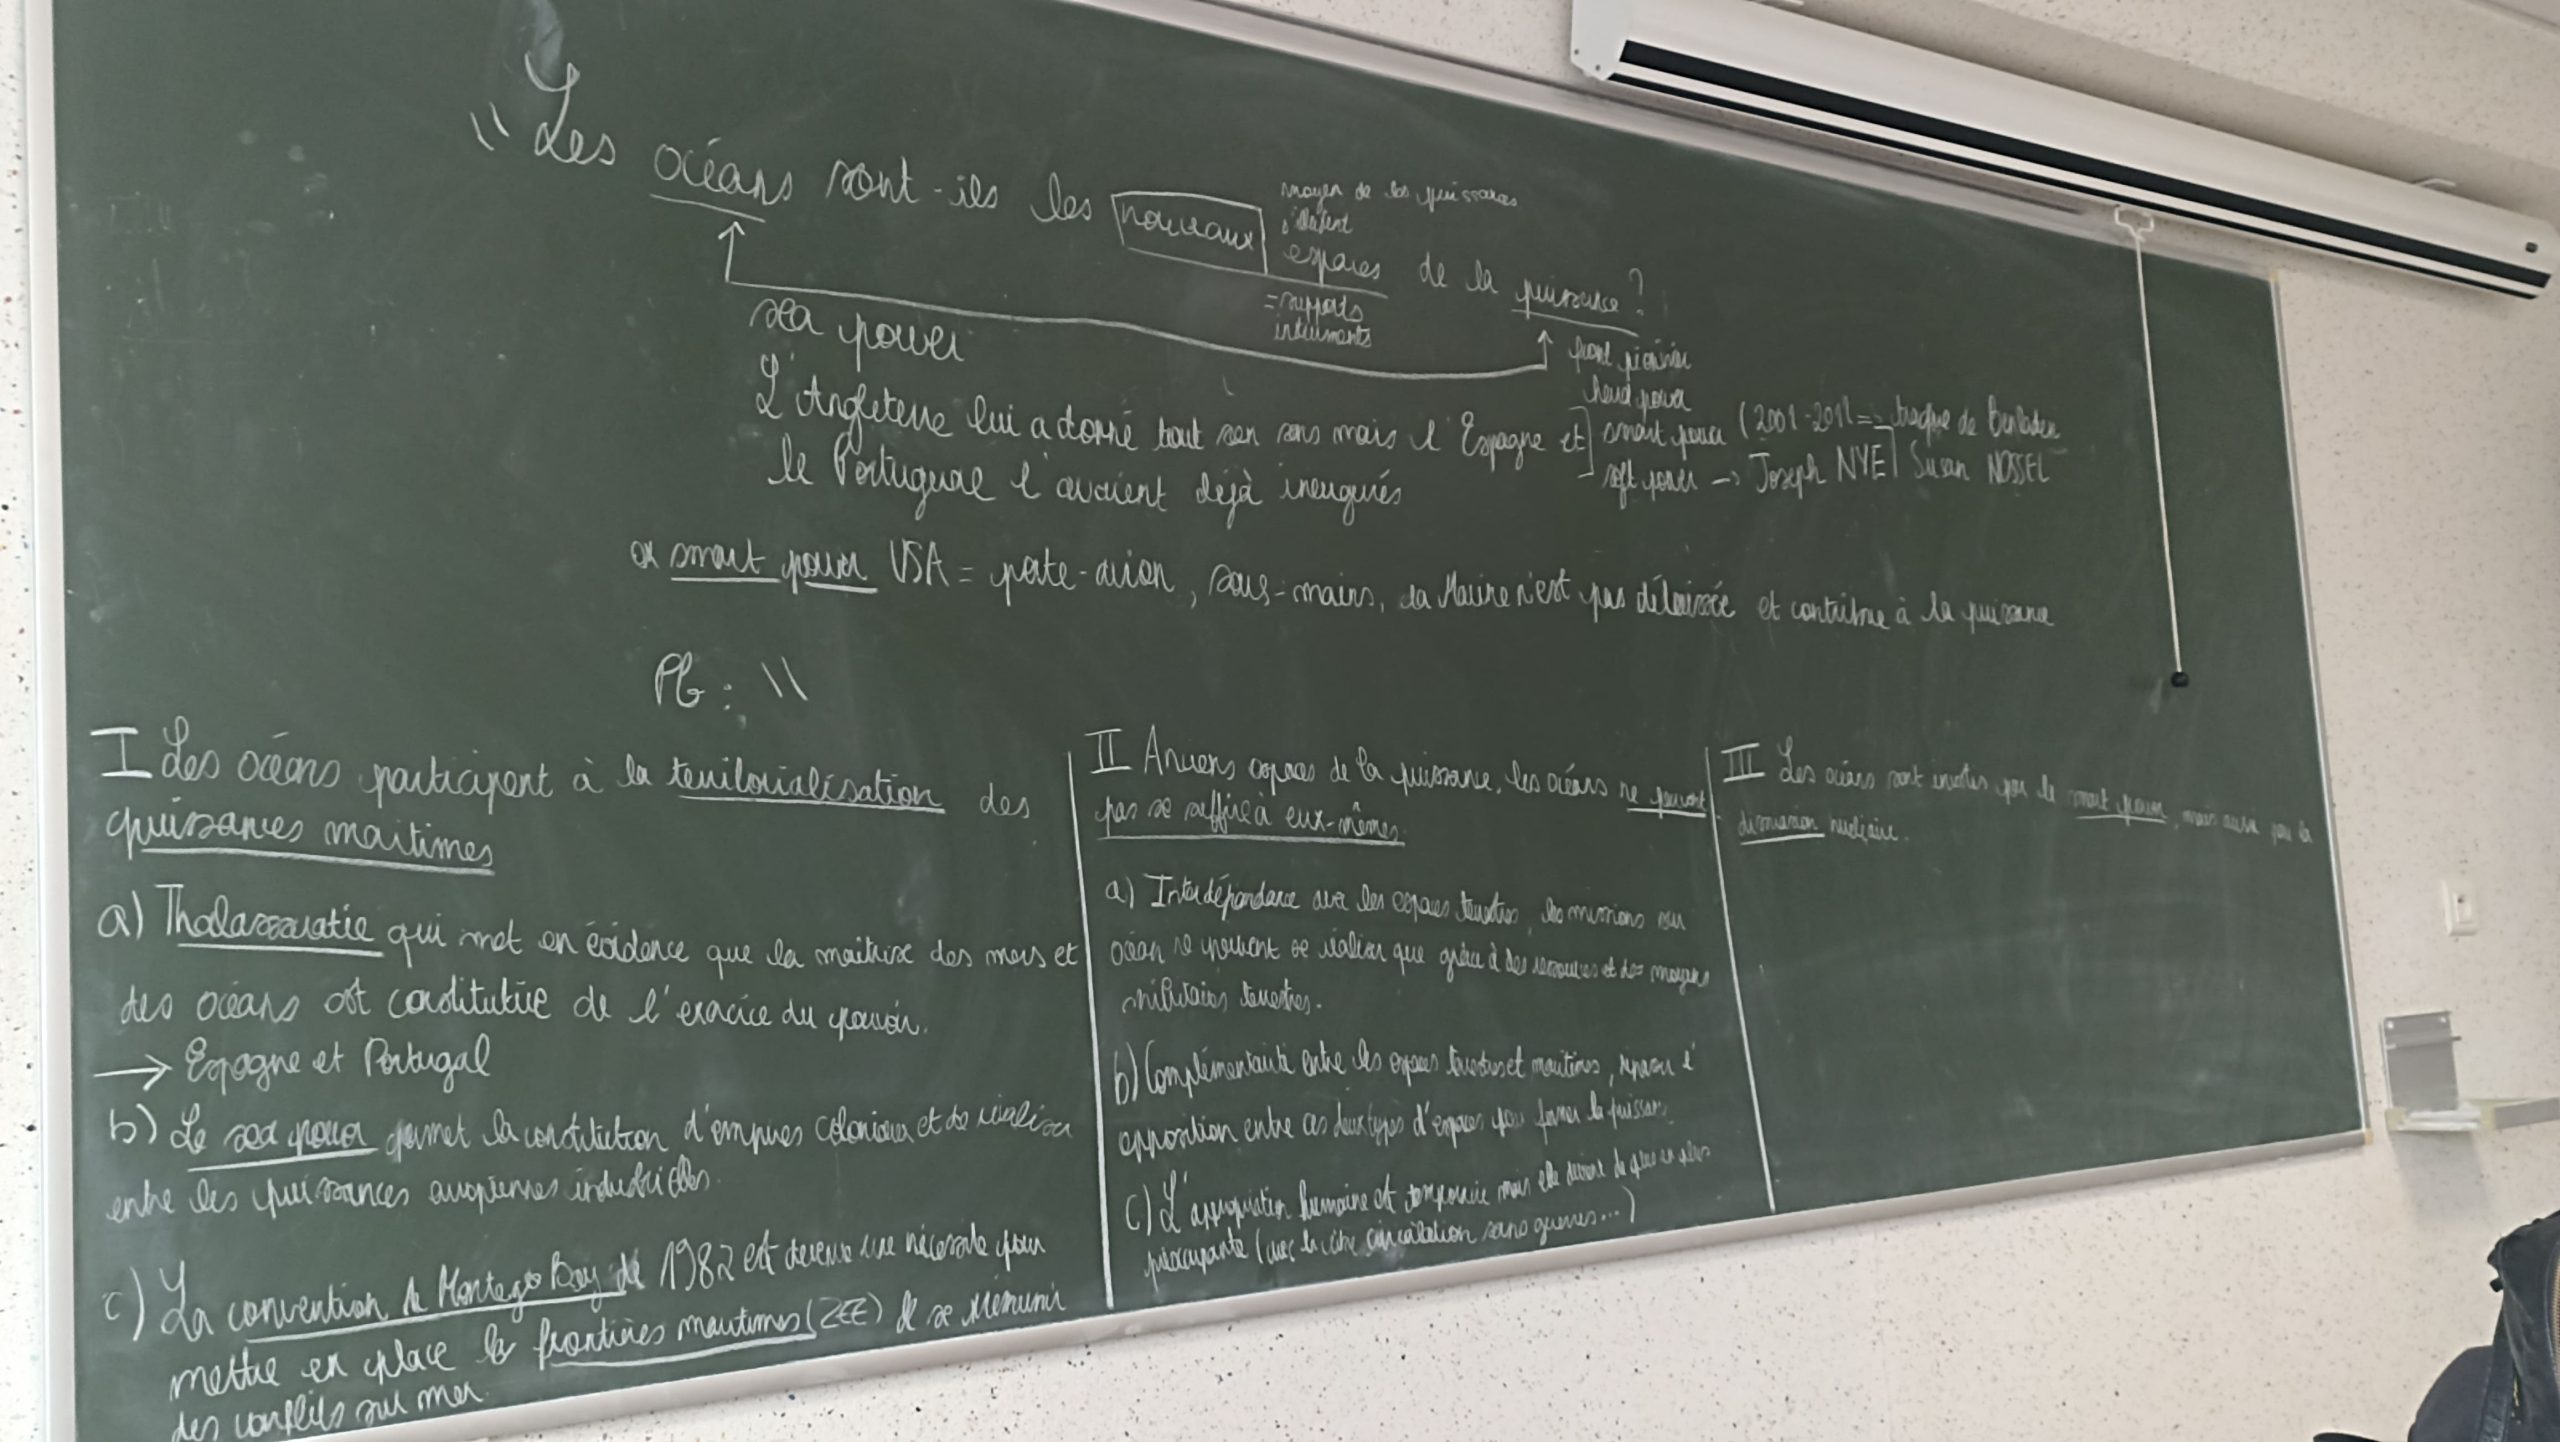 "Les océans sont-ils les nouveaux espaces de la puissance ?
moyen de les puissances
s'
= supports
instruments
sea power
L'Angleterre lui a donné tout son sens mais l'Espagne et
le Portugual l'avaient déjà inaugurés
hard power
smart power (2001-2011 => traque de Benladen
soft power -> Joseph NYE | Susan NOSSEL
smart power USA = porte-avion, sous-marins, la Marine n'est pas délaissée et contribue à la puissance
Pb : "
I Les océans participent à la territorialisation des
puissances maritimes
a) Thalassocratie qui met en évidence que la maîtrise des mers et
des océans est constitutive de l'exercice du pouvoir.
→ Espagne et Portugal
b) Le sea power permet la constitution d'empires coloniaux et de réaliser
entre les puissances européennes industrielles.
c) La convention de Montego Bay de 1982 est devenue une nécessité pour
mettre en place les frontières maritimes (ZEE) et se prémunir
des conflits sur mer.
II Anciens espaces de la puissance, les océans ne peuvent
pas se suffire à eux-mêmes.
a) Interdépendance avec les espaces terrestres, les missions sur
océan ne peuvent se réaliser que grâce à des ressources et des moyens
militaires terrestres.
b) Complémentarité entre les espaces terrestres et maritimes, l'
opposition entre ces deux types d'espaces pour former la puissance
c) L'appropriation humaine est temporaire mais elle devient de plus en plus
préoccupante (avec la libre circulation sans guerres...)
III Les océans sont investis par le smart power, mais aussi par la
dissuasion nucléaire.